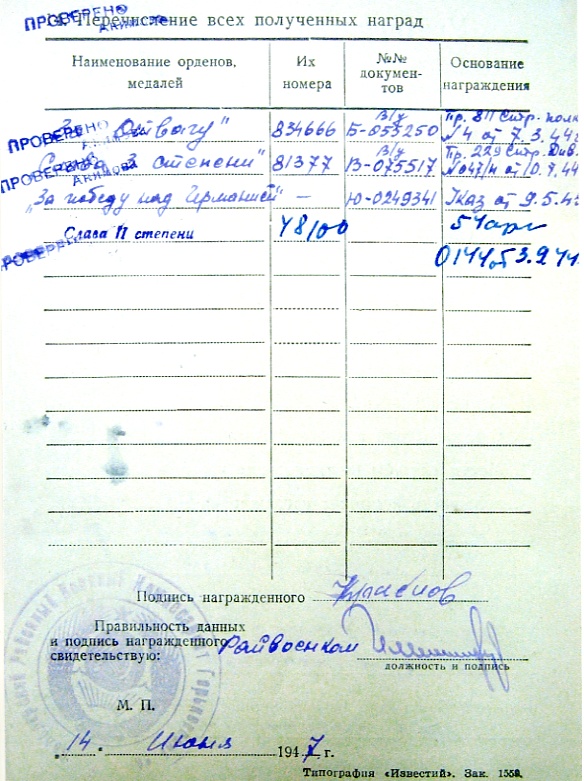 4. Перечисление всех полученных наград
ПРОВЕРЕНО
Акимова
Наименование орденов, медалей
Их номера
№№ документов
Основание награждения
ПРОВЕРЕНО
Акимова
„За Отвагу"
834666
в/у Б-055250
Пр. 811 Стр. полк
N 4 от 7.3.44г
ПРОВЕРЕНО
Акимова
„Слава 3 степени"
81377
в/у В-075517
Пр. 229 Стр. Див.
No 047/н от 10.4.44
„За победу над Германией"
—
Ю-0249341
Указ от 9.5.45
ПРОВЕРЕНО
Слава II степени
48100
54 арм
0144 от 3.9.44
Подпись награжденного
Правильность данных
и подпись награжденного
свидетельствую:
Райвоенком
должность и подпись
М. П.
„14" Июня 1947 г.
Типография «Известий». Зак. 1559.